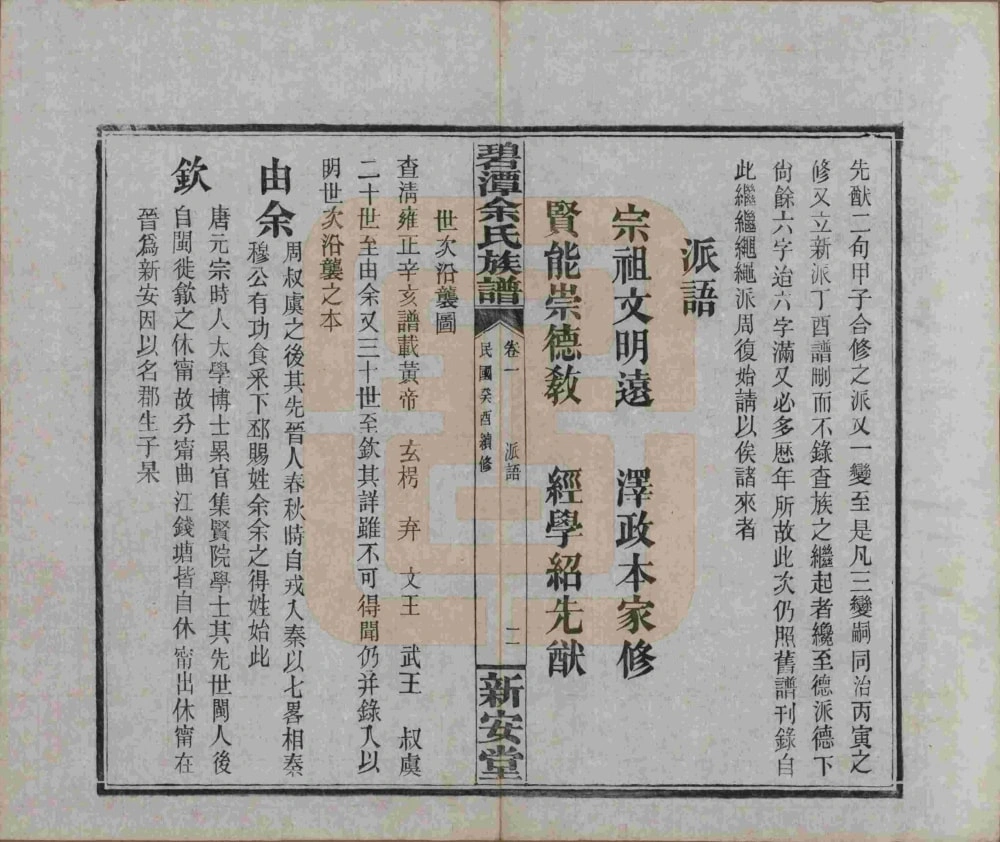 先猷二旬甲子合修之派又一變至是凡三變嗣同治丙寅之
修又立新派丁酉譜刪而不錄查族之繼起者纔至德派德下
尙餘六字迨六字滿又必多歷年所故此次仍照舊譜刊錄自
此繼繼繩繩派周復始請以俟諸來者
派語
宗祖文明遠 澤政本家修
賢能崇德敎 經學紹先猷
碧潭余氏族譜 卷一 派語 民國癸酉續修 二 新安堂
世次沿襲圖
查淸雍正辛亥譜載黃帝 玄枵 弃 文王 武王 叔虞
二十世至由余又三十世至欽其詳雖不可得聞仍并錄入以
明世次沿襲之本
由余 周叔虞之後其先晉人春秋時自戎入秦以七畧相秦
穆公有功食采下邳賜姓余余之得姓始此
欽 唐元宗時人太學博士累官集賢院學士其先世閩人後
自閩徙歙之休甯故分甯曲江錢塘皆自休甯出休甯在
晉爲新安因以名郡生子杲